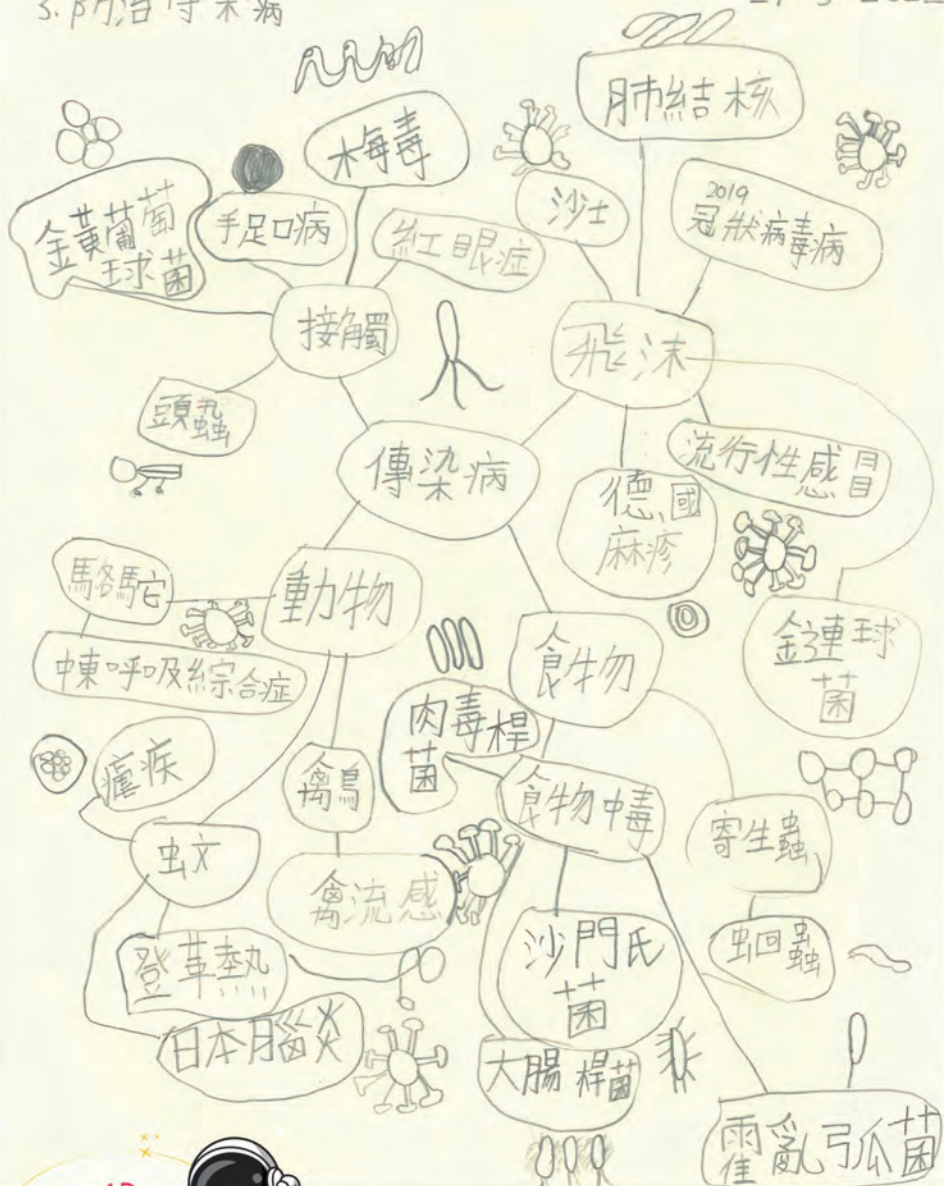 3.防治傳染病
梅毒
肺結核
金黃葡萄
球菌
手足口病
紅眼症
沙士
2019
冠狀病毒病
接觸
飛沫
頭蝨
傳染病
流行性感冒
德國
麻疹
駱駝
動物
中東呼吸綜合症
食物
鏈球
菌
肉毒桿
菌
瘧疾
禽鳥
食物中毒
寄生蟲
蚊
禽流感
沙門氏
菌
蛔蟲
登革熱
日本腦炎
大腸桿菌
霍亂弧菌